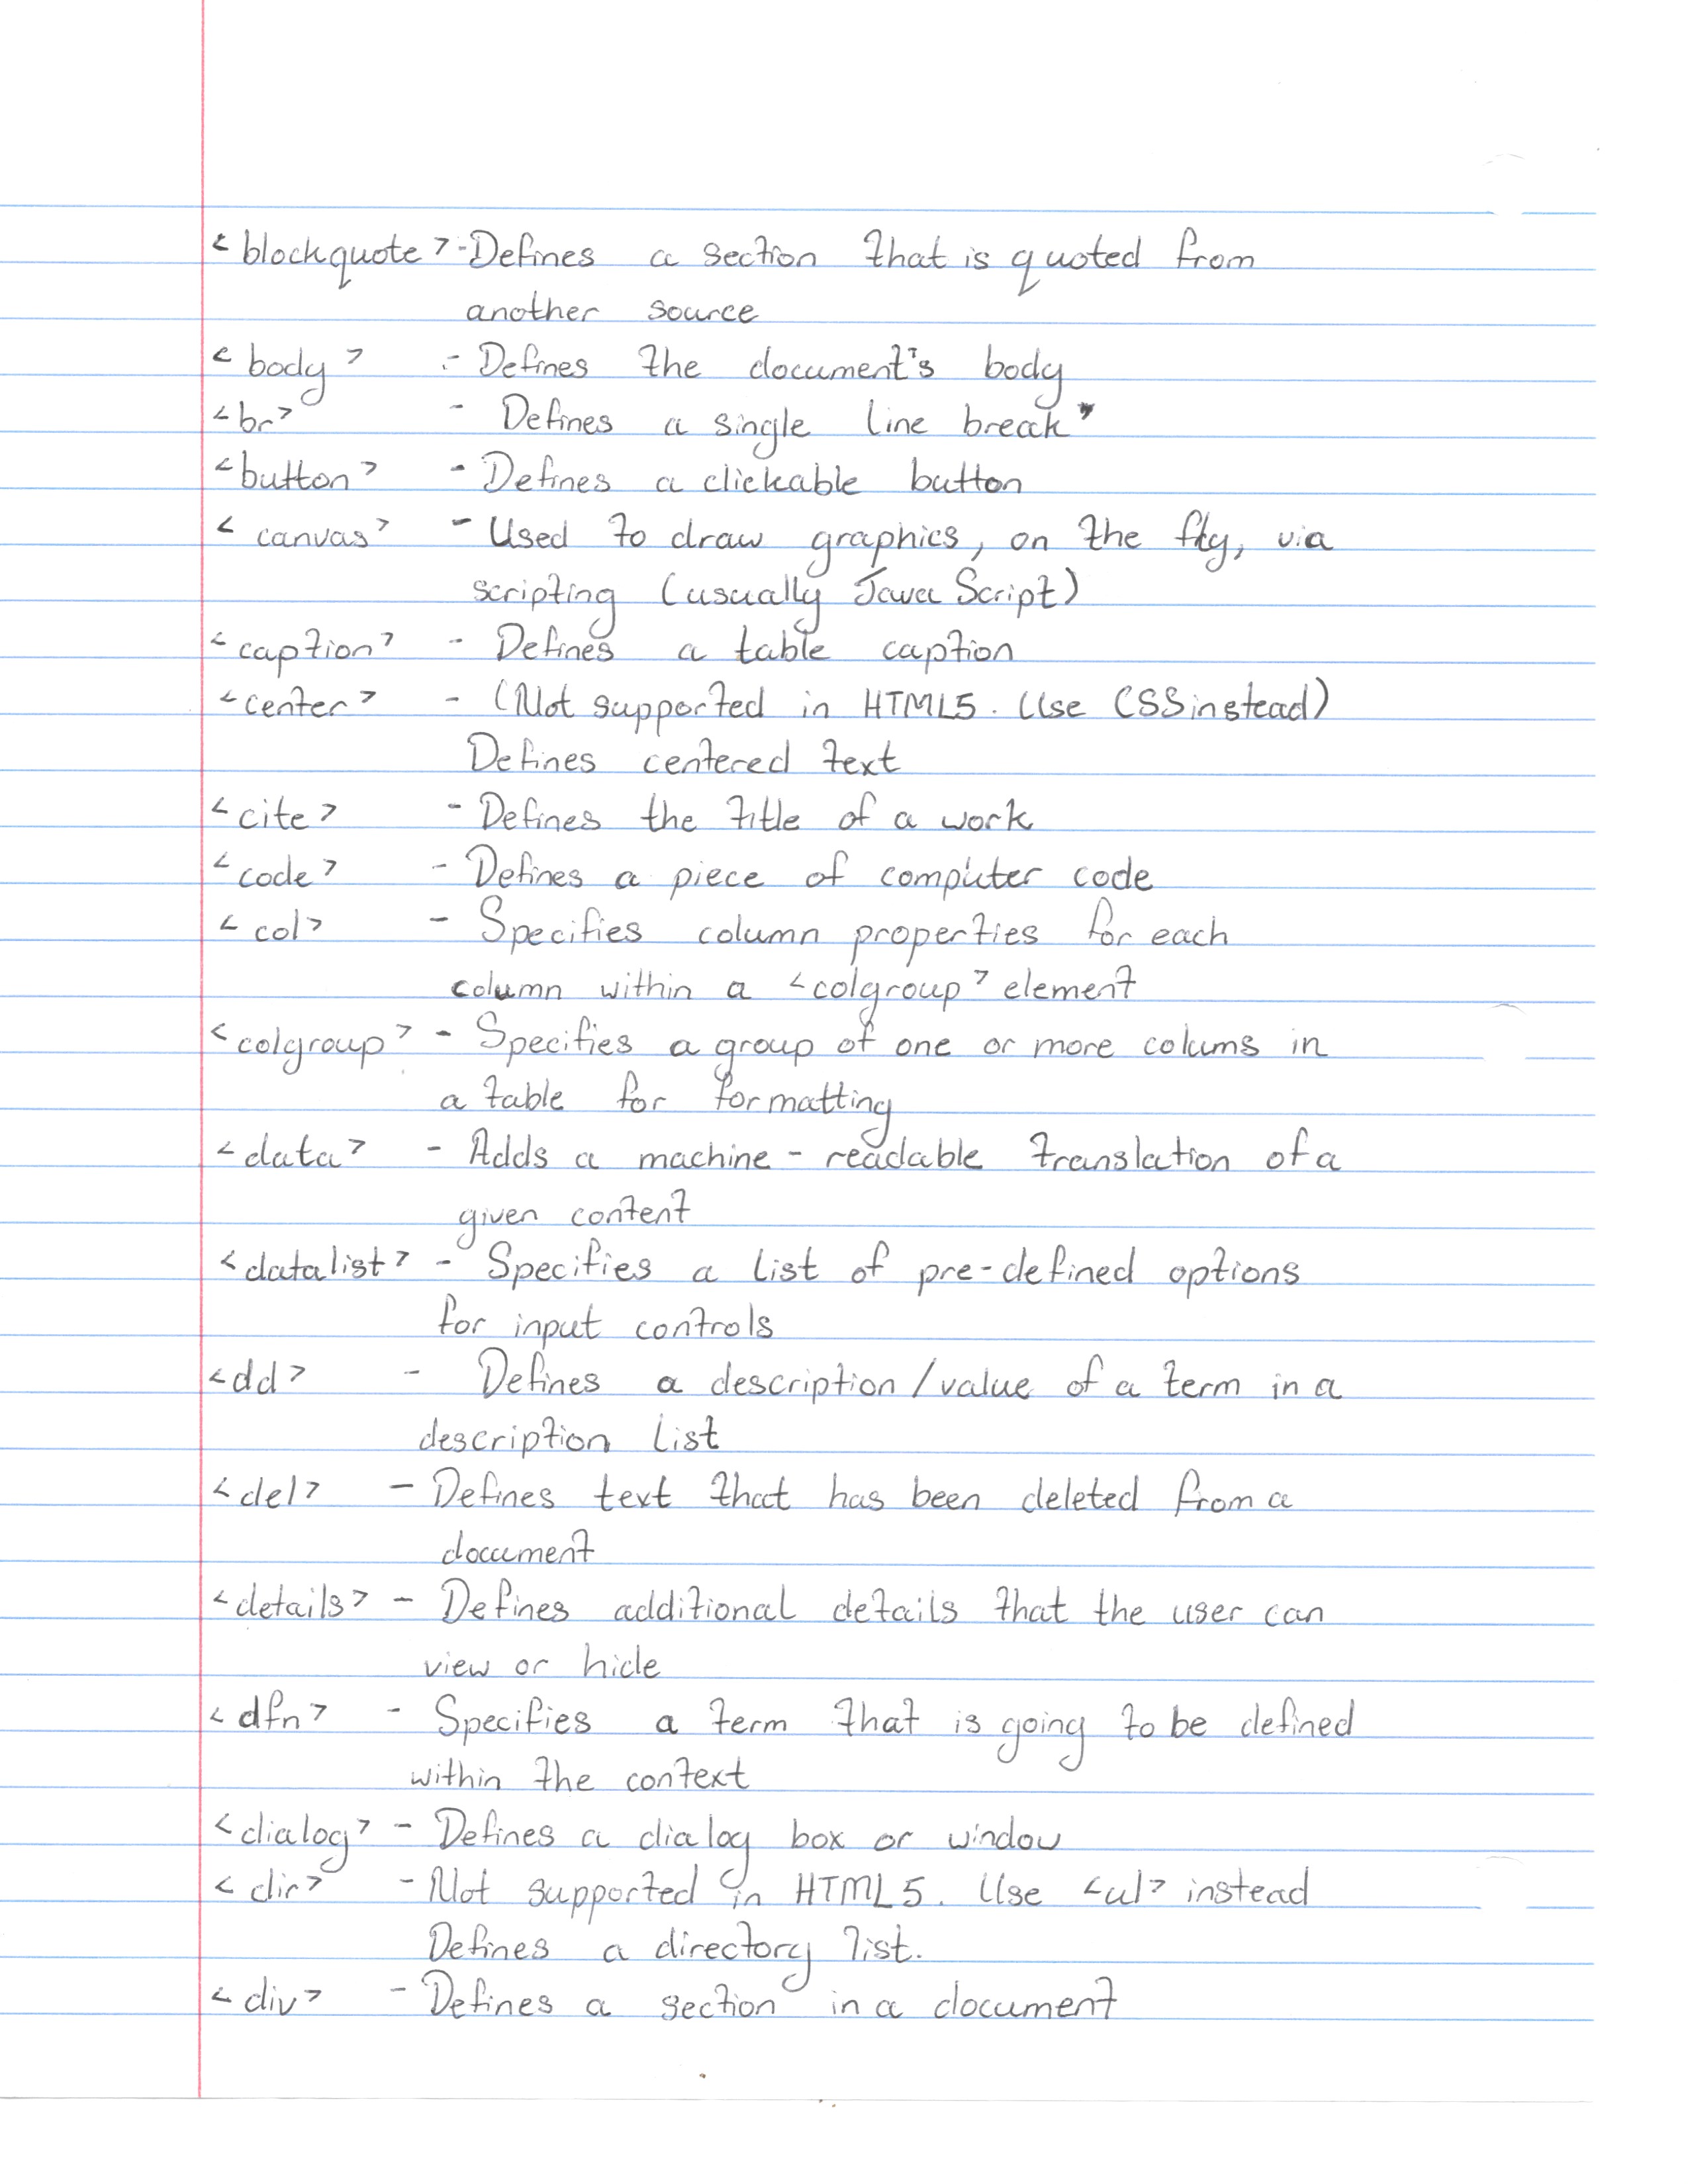 <blockquote> - Defines a section that is quoted from
another source
<body> - Defines the document's body
<br> - Defines a single line break
<button> - Defines a clickable button
<canvas> - Used to draw graphics, on the fly, via
scripting (usually JavaScript)
<caption> - Defines a table caption
<center> - (Not supported in HTML5. Use CSS instead)
Defines centered text
<cite> - Defines the title of a work
<code> - Defines a piece of computer code
<col> - Specifies column properties for each
column within a <colgroup> element
<colgroup> - Specifies a group of one or more colums in
a table for formatting
<data> - Adds a machine-readable translation of a
given content
<datalist> - Specifies a list of pre-defined options
for input controls
<dd> - Defines a description/value of a term in a
description list
<del> - Defines text that has been deleted from a
document
<details> - Defines additional details that the user can
view or hide
<dfn> - Specifies a term that is going to be defined
within the context
<dialog> - Defines a dialog box or window
<dir> - Not supported in HTML5. Use <ul> instead
Defines a directory list.
<div> - Defines a section in a document